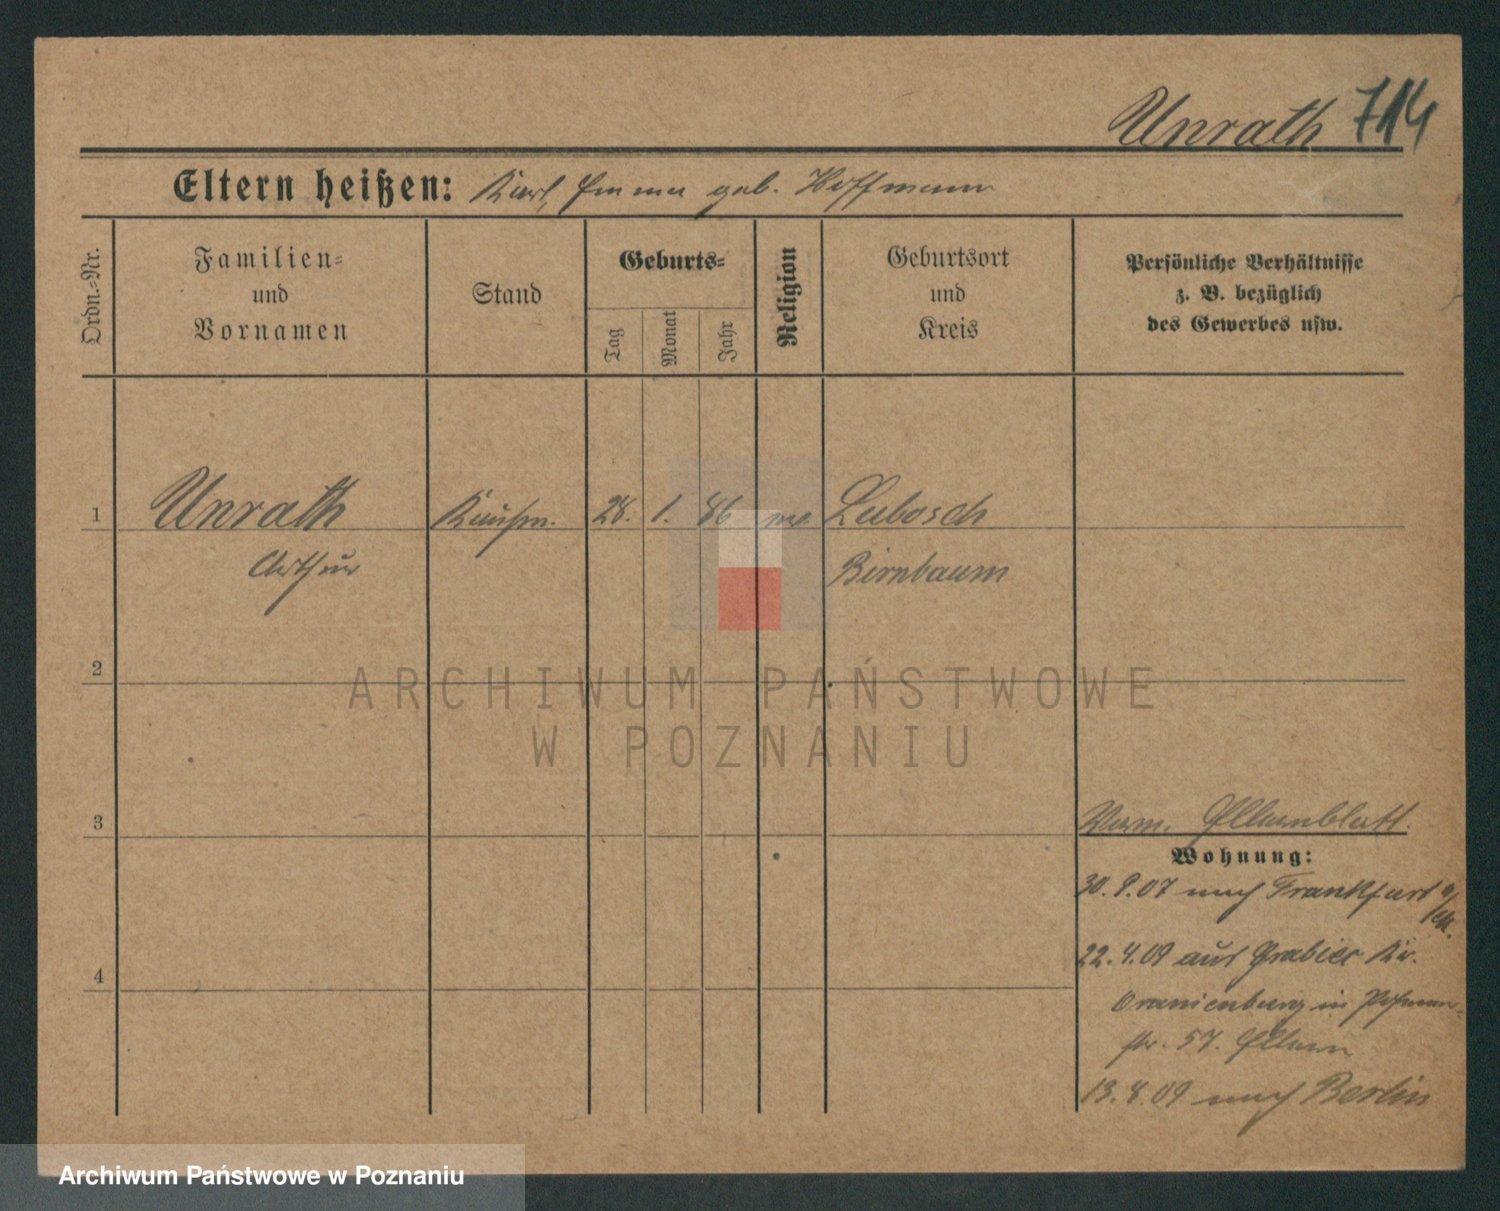 Unrath 714
Eltern heißen: Karl, Emma geb. Hoffmann
Ordn.-Nr.
Familien-
und
Vornamen
Stand
Geburts-
Tag
Monat
Jahr
Religion
Geburtsort
und
Kreis
Persönliche Verhältnisse
z. B. bezüglich
des Gewerbes usw.
1
Unrath
Arthur
Kaufm.
28. 1. 86
Lubosch
Birnbaum
2
ARCHIWUM PAŃSTWOWE
W POZNANIU
3
Elternblatt.
Wohnung:
30. 9. 07 nach Frankfurt a/M.
4
22. 4. 09 aus Kr.
Oranienburg in
str. 57. Eltern
13. 8. 09 nach Berlin
Archiwum Państwowe w Poznaniu